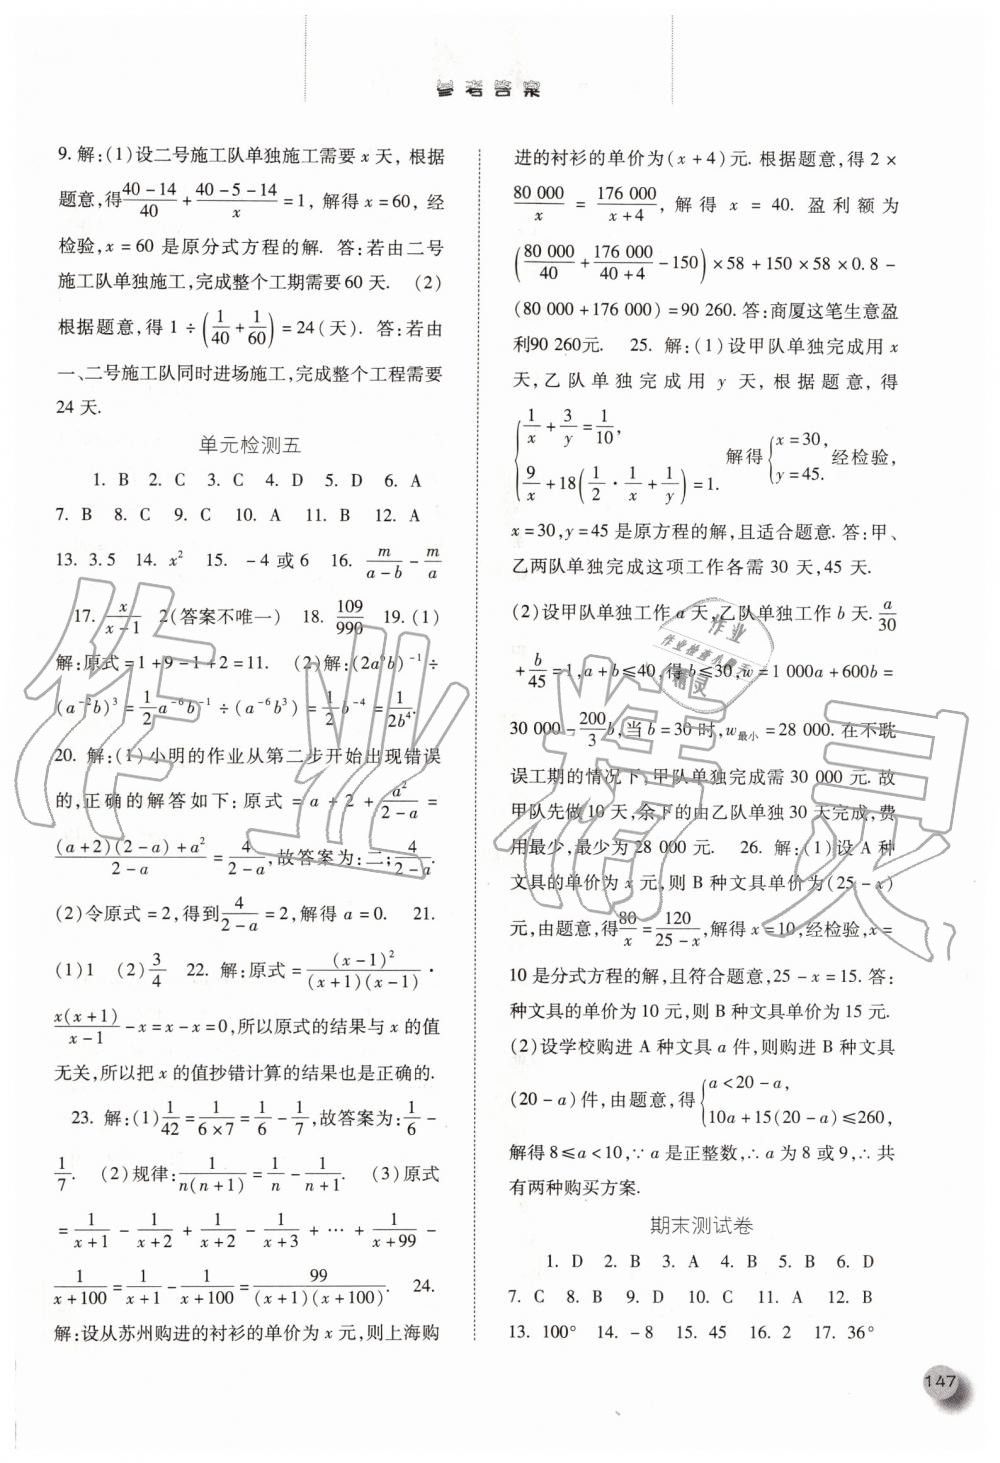 参考答案
9. 解:(1)设二号施工队单独施工需要 x 天, 根据
题意,得\frac{40-14}{40}+\frac{40-5-14}{x}=1, 解得 x=60, 经
检验, x=60 是原分式方程的解. 答:若由二号
施工队单独施工,完成整个工期需要60 天. (2)
根据题意,得 1÷(\frac{1}{40}+\frac{1}{60})=24(天). 答:若由
一、二号施工队同时进场施工,完成整个工程需要
24 天.
单元检测五
1. B 2. C 3. C 4. D 5. D 6. A
7. B 8. C 9. C 10. A 11. B 12. A
13. 3.5 14. x² 15. -4 或 6 16. \frac{m}{a-b}-\frac{m}{a}
17. \frac{x}{x-1} 2(答案不唯一) 18. \frac{109}{990} 19. (1)
解:原式=1+9-1+2=11. (2)解:(2a⁹b)⁻¹÷
(a⁻²b)³=\frac{1}{2}a⁻⁶b⁻¹÷(a⁻⁶b³)=\frac{1}{2}b⁻⁴=\frac{1}{2b⁴}.
20. 解:(1)小明的作业从第二步开始出现错误
的,正确的解答如下:原式=a+2+\frac{a²}{2-a}=
\frac{(a+2)(2-a)+a²}{2-a}=\frac{4}{2-a},故答案为:二;\frac{4}{2-a}.
(2)令原式=2,得到\frac{4}{2-a}=2,解得 a=0. 21.
(1)1 (2)\frac{3}{4} 22. 解:原式=\frac{(x-1)²}{(x+1)(x-1)}·
\frac{x(x+1)}{x-1}-x=x-x=0,所以原式的结果与 x 的值
无关,所以把 x 的值抄错计算的结果也是正确的.
23. 解:(1)\frac{1}{42}=\frac{1}{6×7}=\frac{1}{6}-\frac{1}{7},故答案为:\frac{1}{6}-
\frac{1}{7}. (2)规律:\frac{1}{n(n+1)}=\frac{1}{n}-\frac{1}{n+1}. (3)原式
=\frac{1}{x+1}-\frac{1}{x+2}+\frac{1}{x+2}-\frac{1}{x+3}+…+\frac{1}{x+99}-
\frac{1}{x+100}=\frac{1}{x+1}-\frac{1}{x+100}=\frac{99}{(x+1)(x+100)}. 24.
解:设从苏州购进的衬衫的单价为 x 元,则上海购
进的衬衫的单价为(x+4)元. 根据题意,得 2×
\frac{80 000}{x}=\frac{176 000}{x+4}, 解得 x=40. 盈利额为
(\frac{80 000}{40}+\frac{176 000}{40+4}-150)×58+150×58×0.8-
(80 000+176 000)=90 260. 答:商厦这笔生意盈
利90 260元. 25. 解:(1)设甲队单独完成用 x
天,乙队单独完成用 y 天,根据题意,得
{\frac{1}{x}+\frac{3}{y}=\frac{1}{10}, \frac{9}{x}+18(\frac{1}{2}·\frac{1}{x}+\frac{1}{y})=1. 解得{x=30, y=45. 经检验,
x=30,y=45 是原方程的解,且适合题意. 答:甲、
乙两队单独完成这项工作各需 30 天,45 天.
(2)设甲队单独工作 a 天,乙队单独工作 b 天. \frac{a}{30}
+\frac{b}{45}=1,a+b≤40,得 b≤30,w=1 000a+600b=
30 000-\frac{200}{3}b,当 b=30 时,w最小=28 000. 在不耽
误工期的情况下,甲队单独完成需 30 000 元. 故
甲队先做 10 天,余下的由乙队单独 30 天完成,费
用最少,最少为 28 000 元. 26. 解:(1)设 A 种
文具的单价为 x 元,则 B 种文具单价为(25-x)
元,由题意,得\frac{80}{x}=\frac{120}{25-x},解得 x=10,经检验,x=
10 是分式方程的解,且符合题意,25-x=15. 答:
种文具的单价为 10 元,则 B 种文具单价为 15 元.
(2)设学校购进 A 种文具 a 件,则购进 B 种文具
(20-a)件,由题意,得{a<20-a, 10a+15(20-a)≤260,
解得 8≤a<10,∵a 是正整数,∴a 为 8 或 9,∴共
有两种购买方案.
期末测试卷
1. D 2. B 3. A 4. B 5. B 6. D
7. C 8. B 9. D 10. C 11. A 12. B
13. 100° 14. -8 15. 45 16. 2 17. 36°
147
作业精灵
作业
作业检查小
精灵